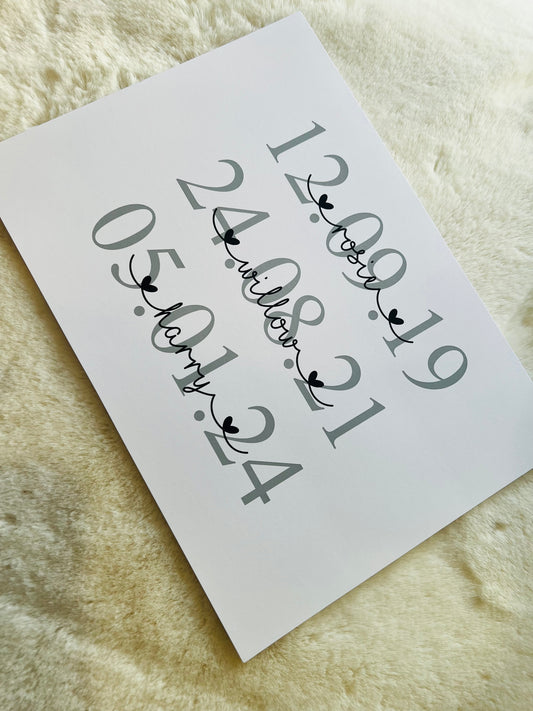 12.09.19
rosie
24.08.21
willow
05.01.24
harry